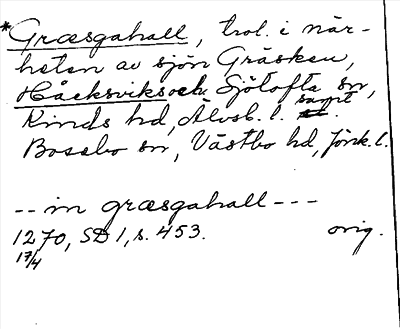 *Græsgahall, trol. i när-
heten av sjön Gräsken,
Håcksviks och Sjötofta sn,
Kinds hd, Älvsb. l. samt
Bosebo sn, Västbo hd, Jönk. l.
-- in græsgahall ---
1270, SD 1, s. 453. orig.
17/4